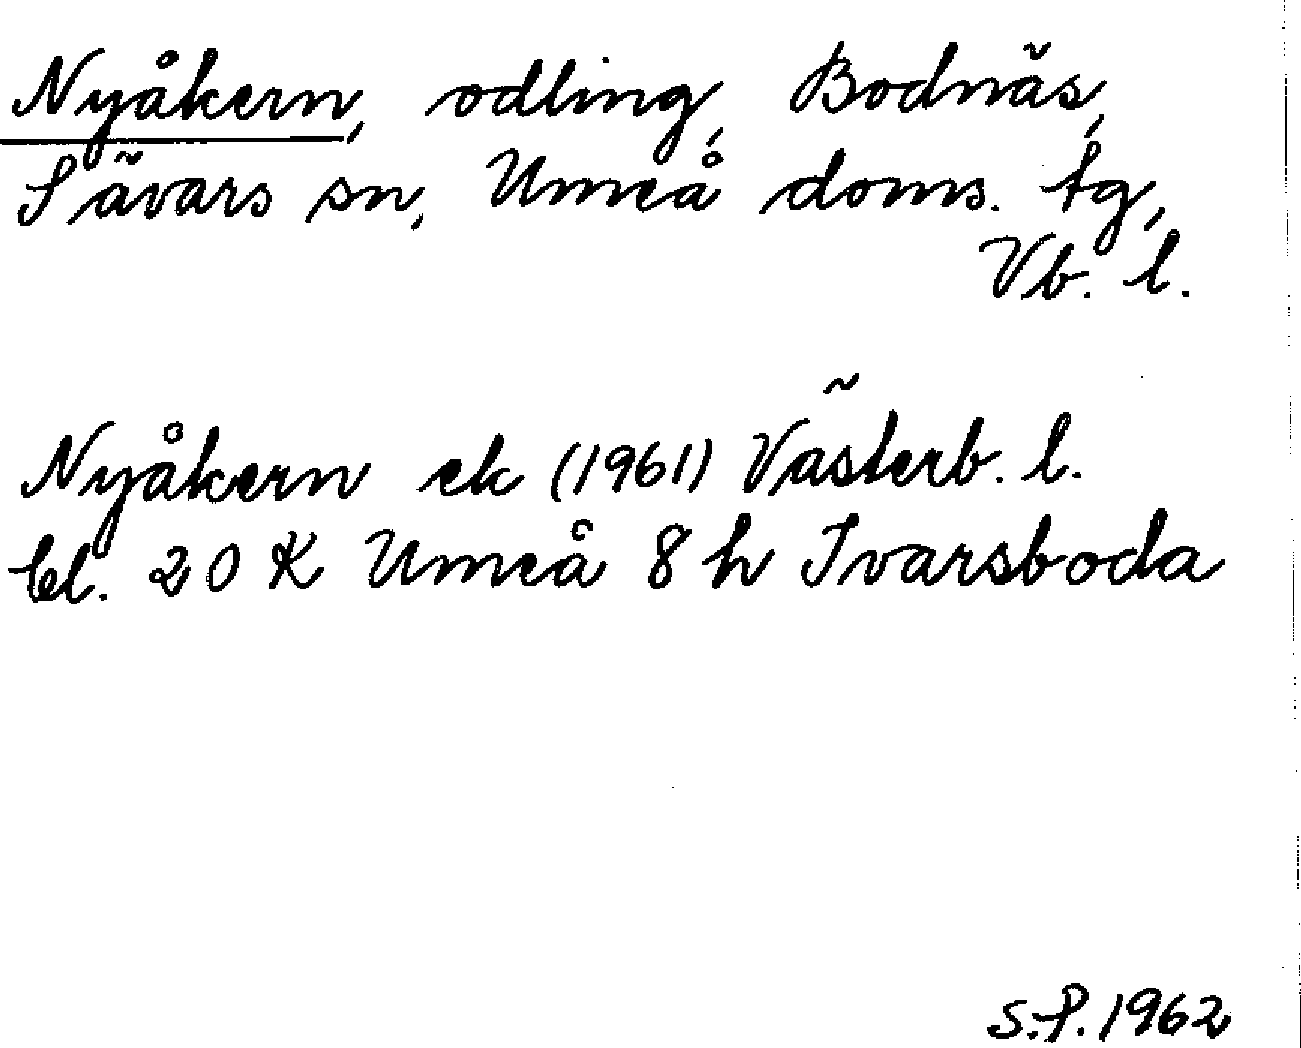 Nyåkern, odling, Bodnäs,
Sävars sn, Umeå doms. tg,
Vb. l.
Nyåkern ek (1961) Västerb. l.
bl. 20 K Umeå 8 h Ivarsboda
S.P. 1962